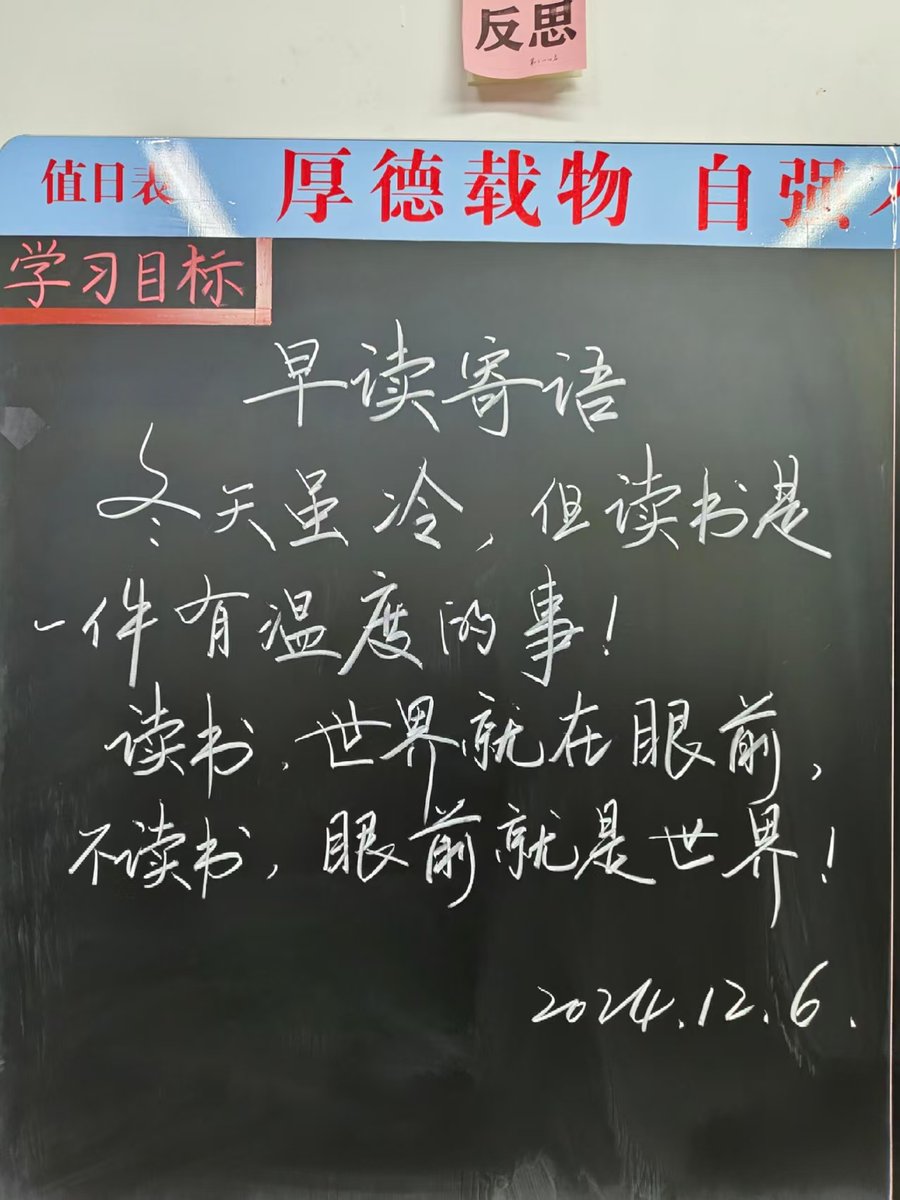 反思
值日表 厚德载物 自强
学习目标
早读寄语
冬天虽冷，但读书是
一件有温度的事！
读书，世界就在眼前，
不读书，眼前就是世界！
2024.12.6.